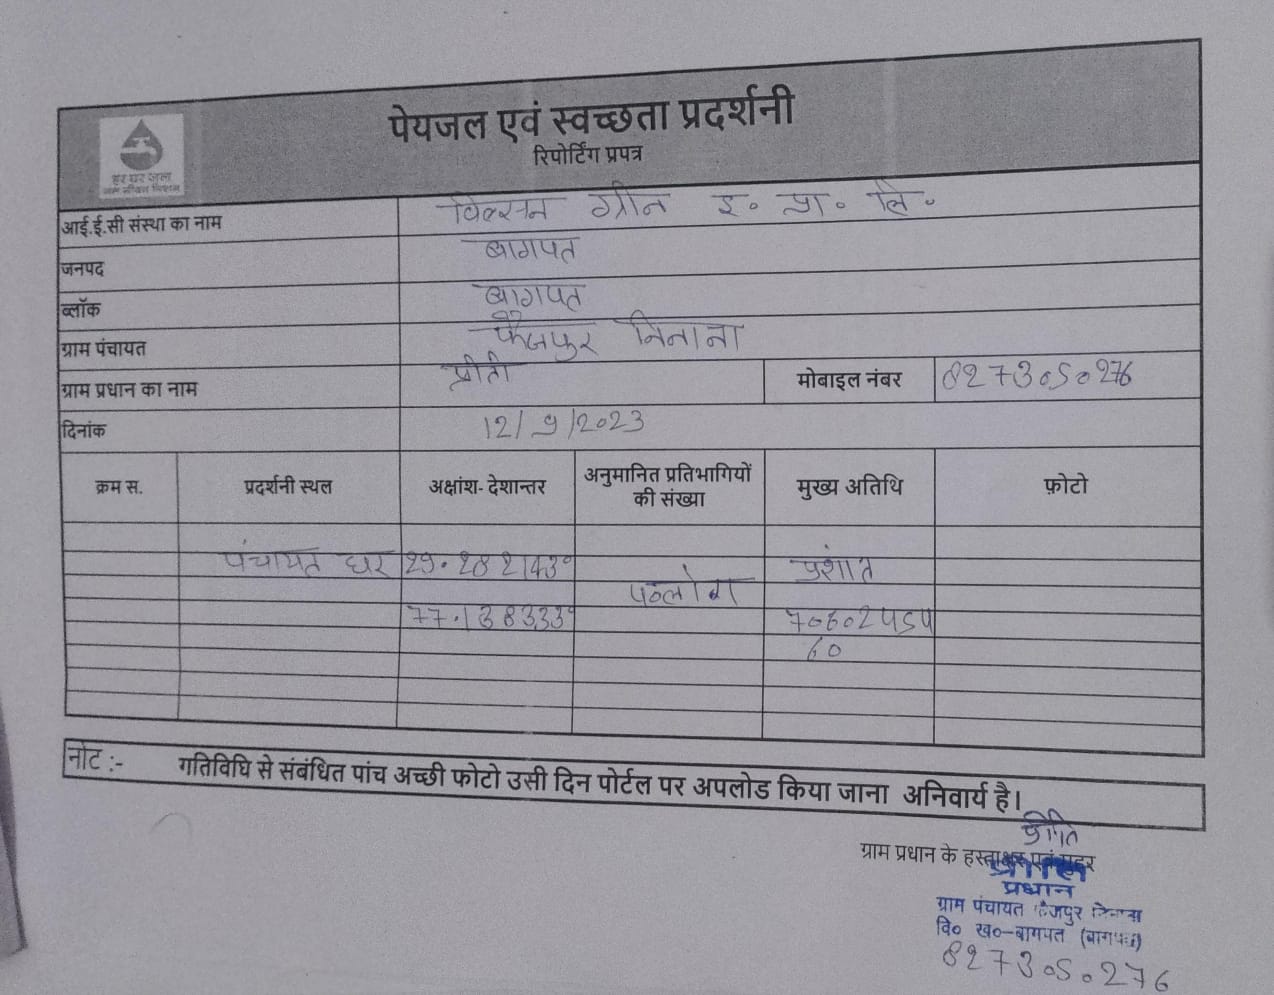 पेयजल एवं स्वच्छता प्रदर्शनी
रिपोर्टिंग प्रपत्र
हर घर जल
जल जीवन मिशन
आई.ई.सी संस्था का नाम विल्सन ग्रीन इ॰ प्रा॰ लि॰
जनपद बागपत
ब्लॉक बागपत
ग्राम पंचायत फैजपुर निनाना
ग्राम प्रधान का नाम प्रीती मोबाइल नंबर 8273050276
दिनांक 12/9/2023
क्रम स. प्रदर्शनी स्थल अक्षांश- देशान्तर अनुमानित प्रतिभागियों की संख्या मुख्य अतिथि फ़ोटो
पंचायत घर 29.282143° प्रशांत
77.138333°
60
नोट :- गतिविधि से संबंधित पांच अच्छी फोटो उसी दिन पोर्टल पर अपलोड किया जाना अनिवार्य है।
ग्राम प्रधान के हस्ताक्षर एवं मुहर
प्रधान
ग्राम पंचायत फैजपुर निनाना
वि० ख०-बागपत (बागपत)
8273050276